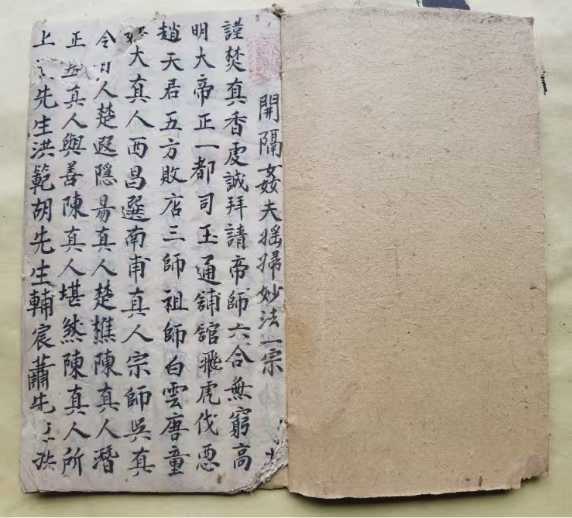 開隔姦夫婬婦妙法一宗
謹焚真香虔誠拜請帝師六合無窮高
明大帝正一都司玉通舖舘飛虎伐惡
趙天君五方敗店三師祖師白雲唐童
大真人西昌選南甫真人宗師吳真
人楚遐隱昜真人楚樵陳真人潛
正真人與善陳真人堪然陳真人所
上先生洪範胡先生輔宸蕭先